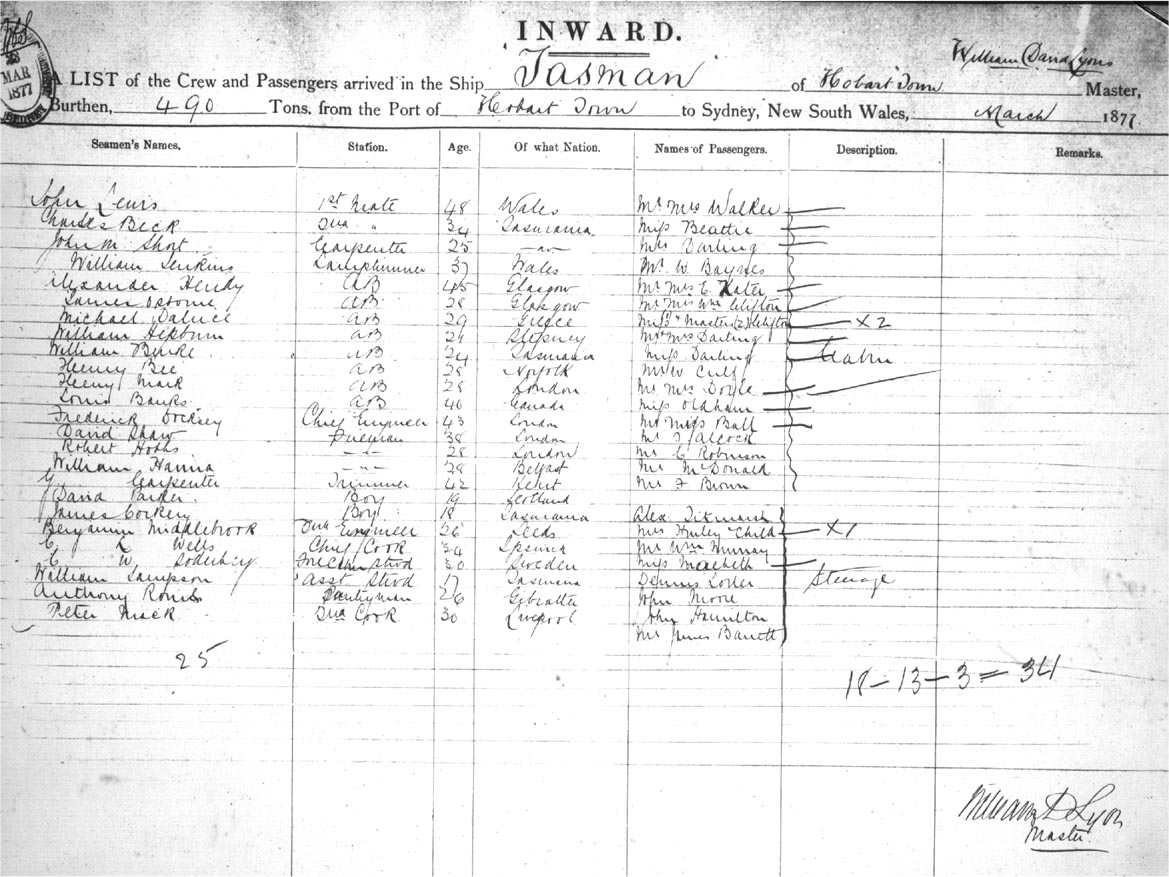 INWARD.
23
MAR
1877
William David Lyons
A LIST of the Crew and Passengers arrived in the Ship Tasman of Hobart Town Master,
Burthen, 490 Tons, from the Port of Hobart Town to Sydney, New South Wales, March 1877.
Seamen's Names. Station. Age. Of what Nation. Names of Passengers. Description. Remarks.
John Lewis 1st Mate 48 Wales Mr Mrs Walker
Charles Beck 2nd " 34 Tasmania Miss Beattie
John M Short Carpenter 25 -"- Darling
William Jenkins Lamptrimmer 37 Wales Mr W Baynes
Alexander Hendy AB 45 Glasgow Mr Mrs E Kater
James Osborne AB 28 Glasgow Mr Mrs Wm Clifton
Michael AB 29 Greece Miss & Master (2) Clifton X2
William Hepburn AB 24 Mr Mrs Darling
William Burke AB 24 Tasmania Miss Darling Cabin
Henry Bee AB 28 Norfolk Mr W
Henry Mack AB 28 London Mr Mrs Doyle
Louis Banks AB 40 Canada Miss Oldham
Frederick Chief Engineer 43 London Mr Miss Ball
David Shaw Fireman 38 London Mr Alcock
Robert Hobbs -"- 28 London Mr C Robinson
William Hanna -"- 28 Belfast Mr McDonald
G Carpenter Trimmer 42 Kent Mr F Brown
David Parker. Boy 19 Scotland
James Corkery Boy 18 Tasmania Alex Titmarsh
Benjamin Middlebrook 2nd Engineer 26 Leeds Mrs Child X1
Wells Chief Cook 34 Mr Wm Murray
C W 30 Sweden Miss Macbeth
William Sampson Asst Stwd 17 Tasmania Dennis Steerage
Anthony Pantryman 26 Gibralter John Moore
Peter Mack 2nd Cook 30 Liverpool John Hamilton
Mr James Barrett
25
18-13-3=34
William D Lyon
Master